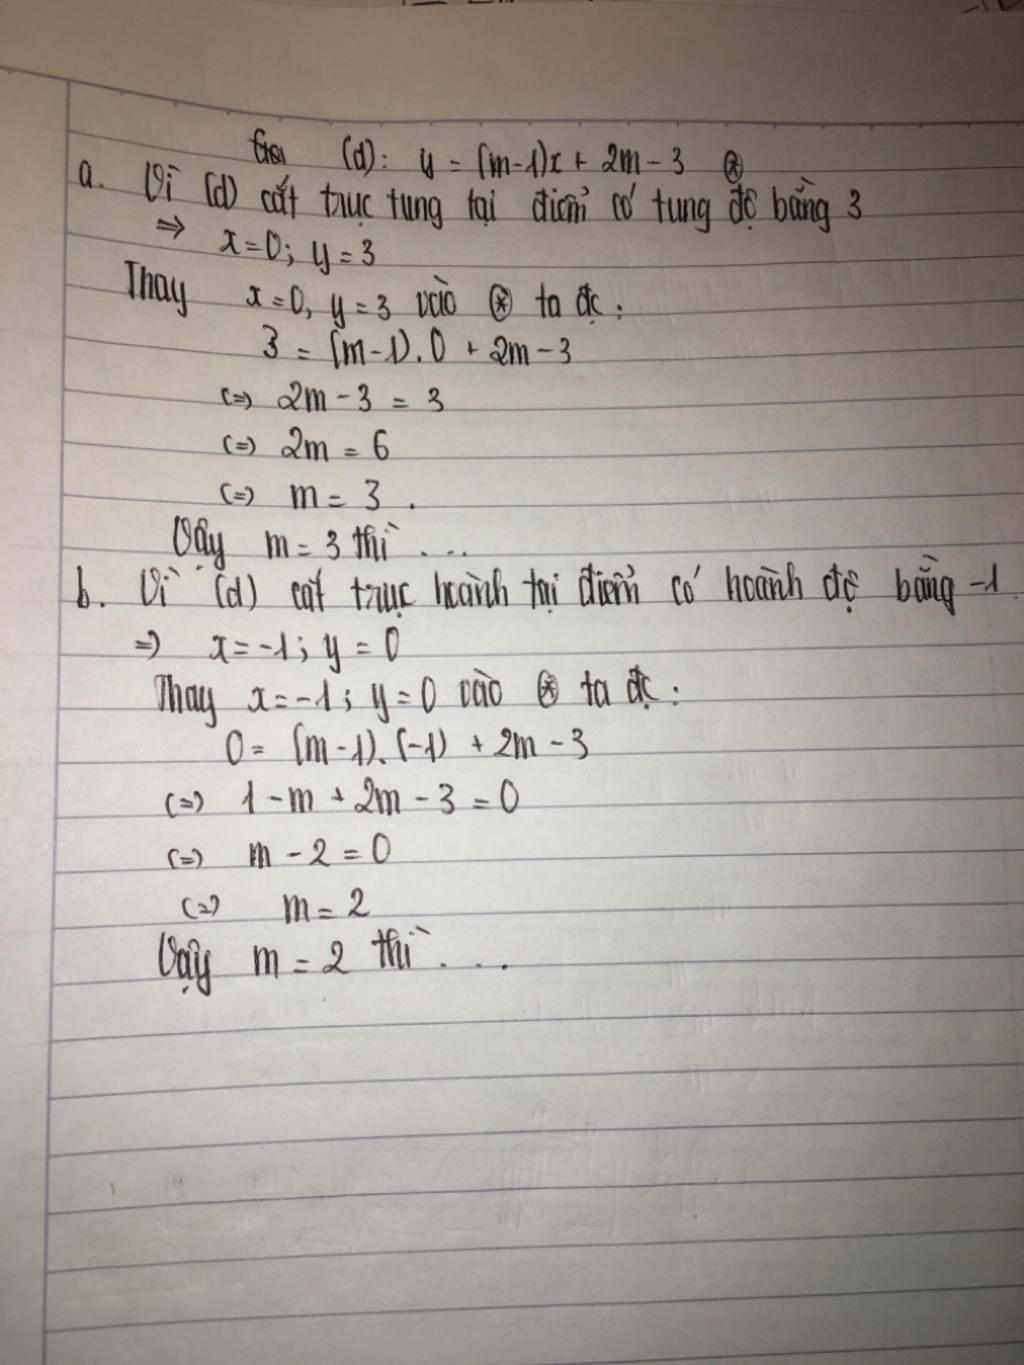 Gọi (d): y = (m-1)x + 2m - 3 ⊛
a. Vì (d) cắt trục tung tại điểm có tung độ bằng 3
=> x=0; y=3
Thay x=0, y=3 vào ⊛ ta đc:
3 = (m-1).0 + 2m-3
(=) 2m-3 = 3
(=) 2m = 6
(=) m = 3.
Vậy m=3 thì ...
b. Vì (d) cắt trục hoành tại điểm có hoành độ bằng -1
=) x=-1; y=0
Thay x=-1; y=0 vào ⊛ ta đc:
0= (m-1).(-1) + 2m-3
(=) 1-m+2m-3=0
(=) m-2=0
(=) m=2
Vậy m=2 thì ...